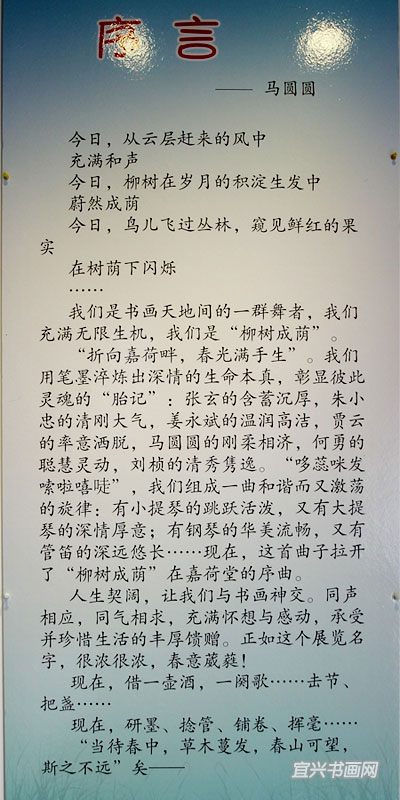 序言
—— 马圆圆
今日，从云层赶来的风中
充满和声
今日，柳树在岁月的积淀生发中
蔚然成荫
今日，鸟儿飞过丛林，窥见鲜红的果
实
在树荫下闪烁
……
我们是书画天地间的一群舞者，我们
充满无限生机，我们是“柳树成荫”。
“折向嘉荷畔，春光满手生”。我们
用笔墨淬炼出深情的生命本真，彰显彼此
灵魂的“胎记”：张玄的含蓄沉厚，朱小
忠的清刚大气，姜永斌的温润高洁，贾云
的率意洒脱，马圆圆的刚柔相济，何勇的
聪慧灵动，刘桢的清秀隽逸。“哆蕊咪发
嗦啦嘻哒”，我们组成一曲和谐而又激荡
的旋律：有小提琴的跳跃活泼，又有大提
琴的深情厚意；有钢琴的华美流畅，又有
管笛的深远悠长……现在，这首曲子拉开
了“柳树成荫”在嘉荷堂的序曲。
人生契阔，让我们与书画神交。同声
相应，同气相求，充满怀想与感动，承受
并珍惜生活的丰厚馈赠。正如这个展览名
字，很浓很浓，春意葳蕤！
现在，借一壶酒，一阕歌……击节、
把盏……
现在，研墨、捻管、铺卷、挥毫……
“当待春中，草木蔓发，春山可望，
斯之不远”矣——
宜兴书画网